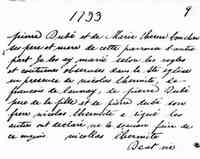 1793
9
pierre Dubé et de Marie therese bouchar
ses pere et mere de cette paroisse d'autre
part Je les ay mariés selon les regles
et coutumes observées dans la Ste eglise
en presence de nicolas thermite, de
francois de launay, de pierre Dubé
pere de la fille et de pierre dubé son
frere nicolas thermite a signé les
autres ont declaré ne le scavoir faire de
ce requis nicollas thermite